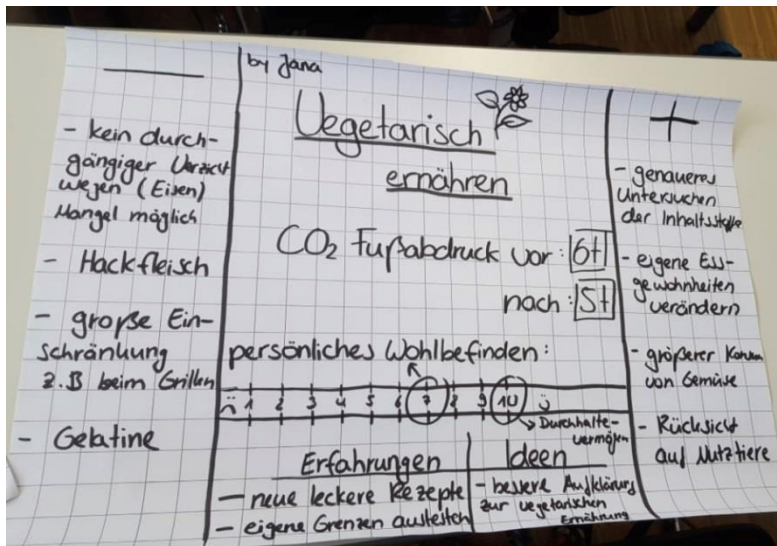 —
- kein durch-
gängiger Verzicht
wegen (Eisen)
Mangel möglich
- Hackfleisch
- große Ein-
schränkung
z.B beim Grillen
- Gelatine
by Jana
Vegetarisch
ernähren
CO2 Fußabdruck vor: 6t
nach: 5t
persönliches Wohlbefinden:
1 2 3 4 5 6 7 8 9 10
Durchhalte-
vermögen
Erfahrungen
- neue leckere Rezepte
- eigene Grenzen austesten
Ideen
- bessere Aufklärung
zur vegetarischen
Ernährung
+
- genaueres
Untersuchen
der Inhaltsstoffe
- eigene Ess-
gewohnheiten
verändern
- größerer Konsum
von Gemüse
- Rücksicht
auf Nutztiere